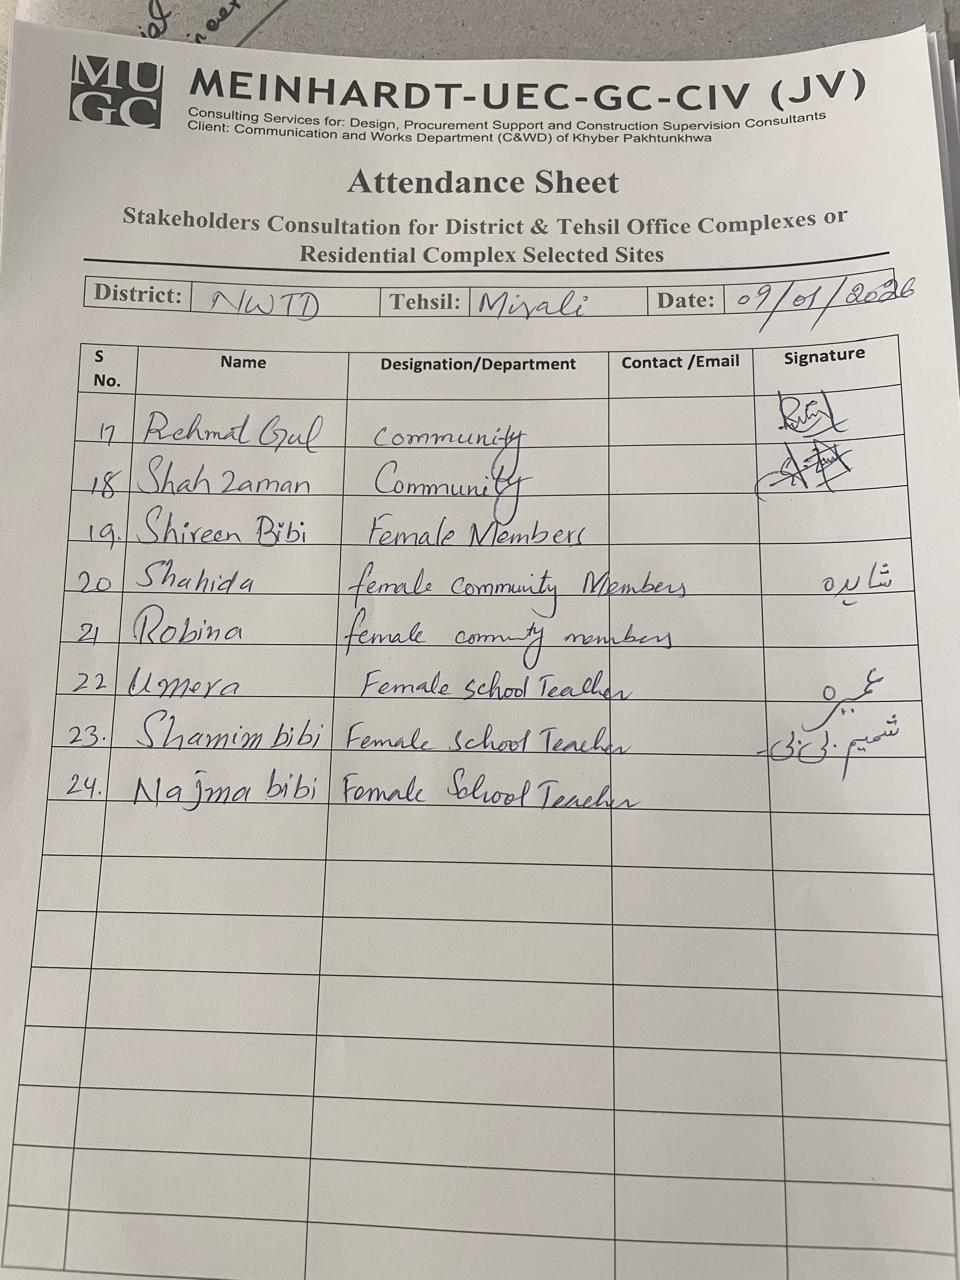 MU
GC
MEINHARDT-UEC-GC-CIV (JV)
Consulting Services for: Design, Procurement Support and Construction Supervision Consultants
Client: Communication and Works Department (C&WD) of Khyber Pakhtunkhwa
Attendance Sheet
Stakeholders Consultation for District & Tehsil Office Complexes or
Residential Complex Selected Sites
District: NWTD Tehsil: Mirali Date: 09/01/2026
S No. Name Designation/Department Contact /Email Signature
17 Rehmat Gul Community
18 Shah Zaman Community
19. Shireen Bibi Female Members
20 Shahida female community Members شاہدہ
21 Robina female community members
22 Umera Female school Teacher عمیرہ
23. Shamim bibi Female School Teacher شمیم بی بی
24. Najma bibi Female School Teacher